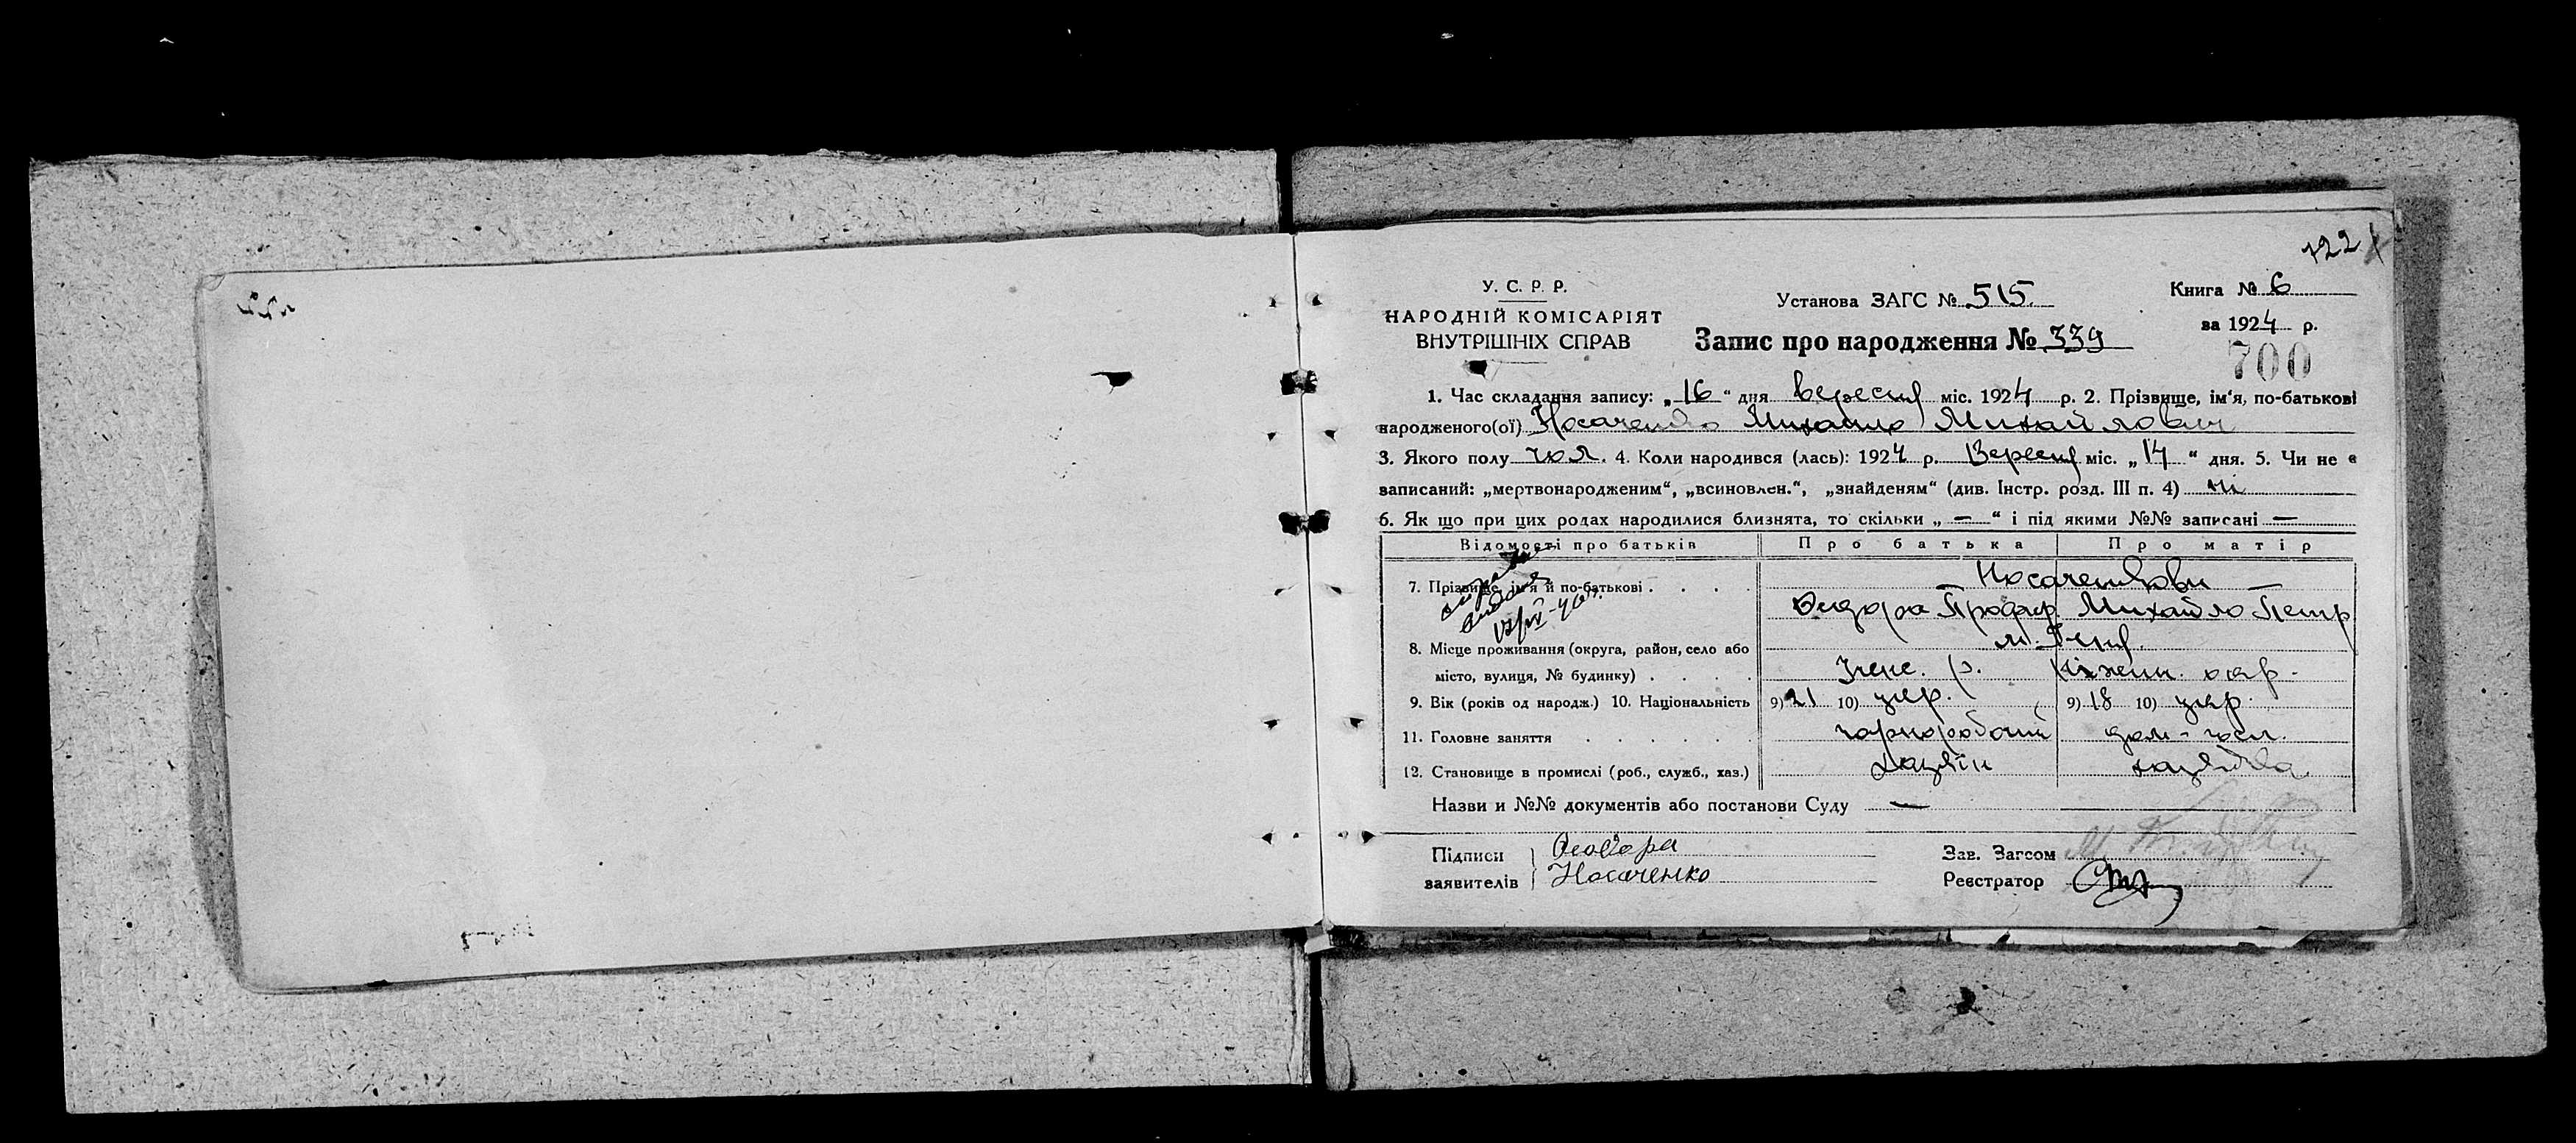 722
У. С. Р. Р.
НАРОДНІЙ КОМІСАРІЯТ
ВНУТРІШНІХ СПРАВ
Установа ЗАГС № 515.
Запис про народження № 339
Книга № 6
за 1924 р.
700
1. Час складання запису: „16“ дня вересня міс. 1924 р. 2. Прізвище, ім‘я, по-батькові
народженого(ої) Носаченко Михайло Михайлович
3. Якого полу чол. 4. Коли народився (лась): 1924 р. Вересня міс. „14“ дня. 5. Чи не є
записаний: „мертвонародженим“, „всиновлен.“, „знайденям“ (див. Інстр. розд. III п. 4) ні
6. Як що при цих родах народилися близнята, то скільки „—“ і під якими №№ записані —
Відомості про батьків Про батька Про матір
7. Прізвище, ім‘я й по-батькові . . . . Носаченкови
Михайло Петр
8. Місце проживання (округа, район, село або
м. Ічня
місто, вулиця, № будинку) . . . . Ічне. р. Ніжен. окр.
9. Вік (років од народж.) 10. Національність 9) 21 10) укр. 9) 18 10) укр.
11. Головне заняття . . . . . . чорноробочий дом-госп.
12. Становище в промислі (роб., служб., хаз.) хазяїн
Назви и №№ документів або постанови Суду —
Підписи
заявителів
Носаченко
Зав. Загсом
Реєстратор